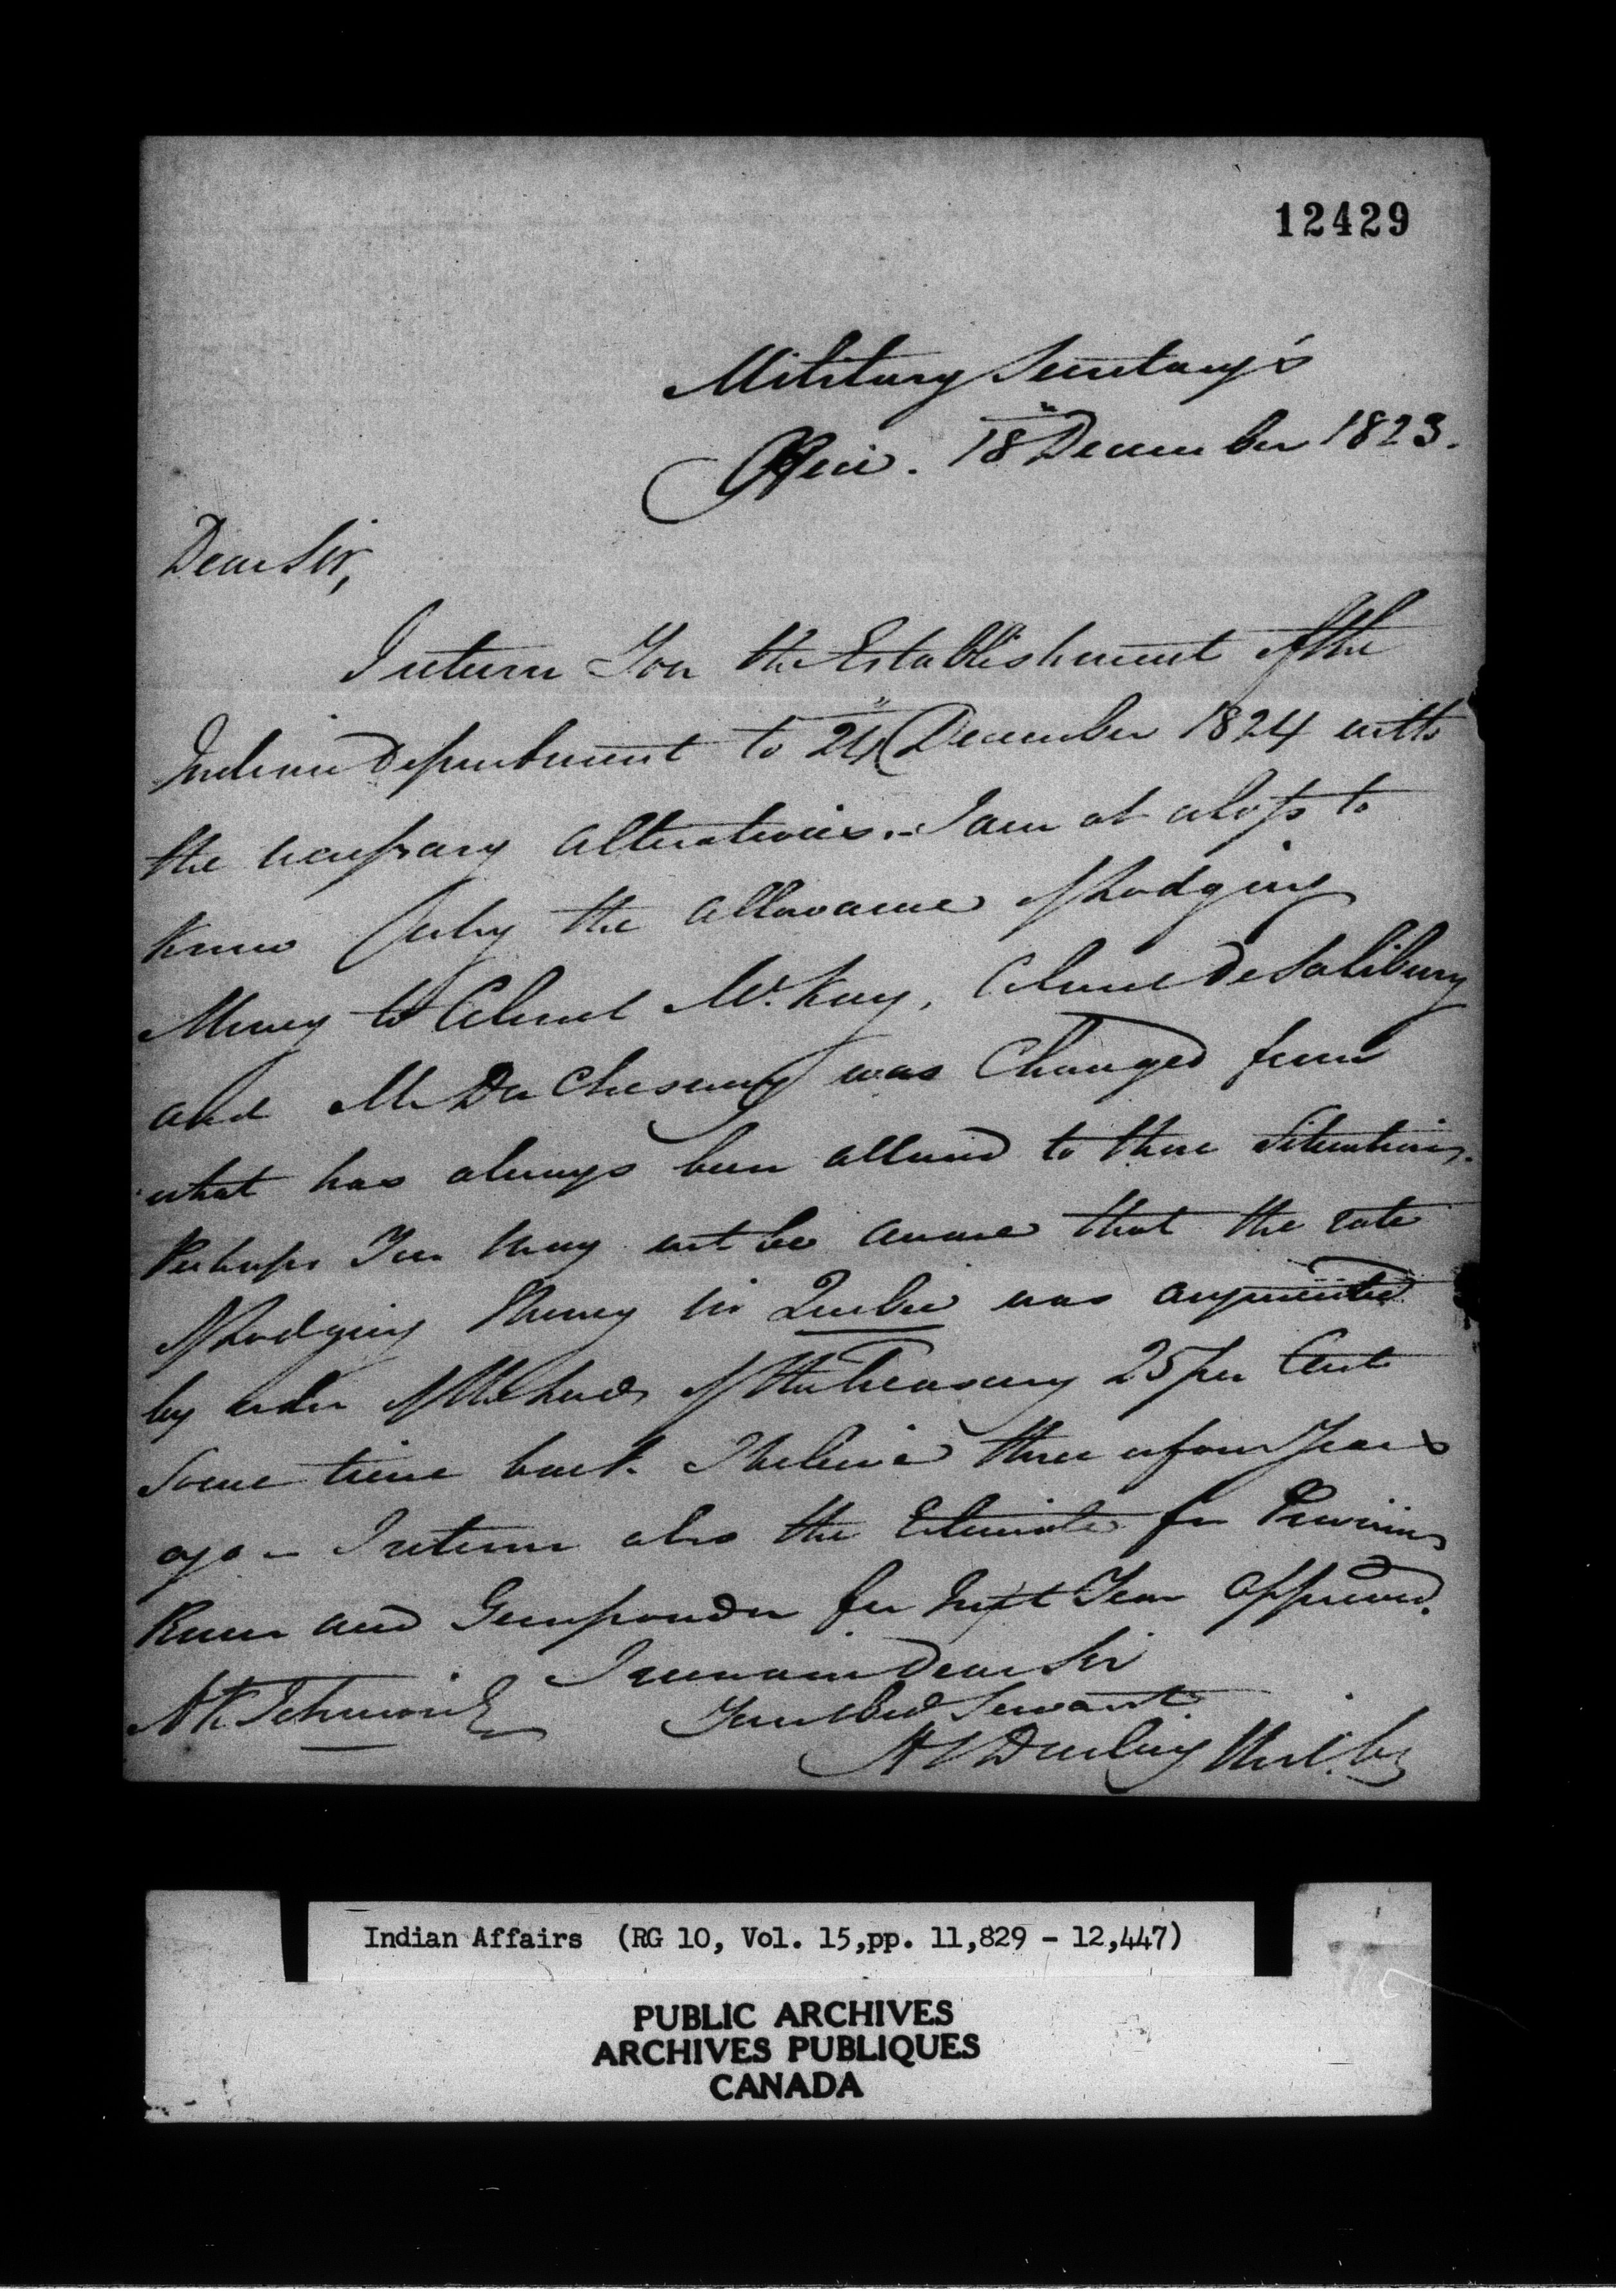 12429
Military Secretary's
Office. 18th December 1823.
Dear Sir,
I return You the Establishment of the
Indian Department to 24th December 1824 with
the necessary alterations. - I am at a loss to
know why the allowance of Lodging
Money to Colonel McKay, Colonel De Salibury
and Mr Du Chesnay was Changed from
what has always been allowed to those Situations.
Perhaps You may not be aware that the rate
of Lodging Money in Quebec was augmented
by order of the Lords of the Treasury 25 per Cent
some time back. I believe three or four Years
ago - I return also the Estimate for Provisions
Rum and Gunpowder for Next Year approved.
I remain Dear Sir
Your Obed Servant
N K Johnson
H C Darling Mil. Sy
Indian Affairs (RG 10, Vol. 15,pp. 11,829 - 12,447)
PUBLIC ARCHIVES
ARCHIVES PUBLIQUES
CANADA